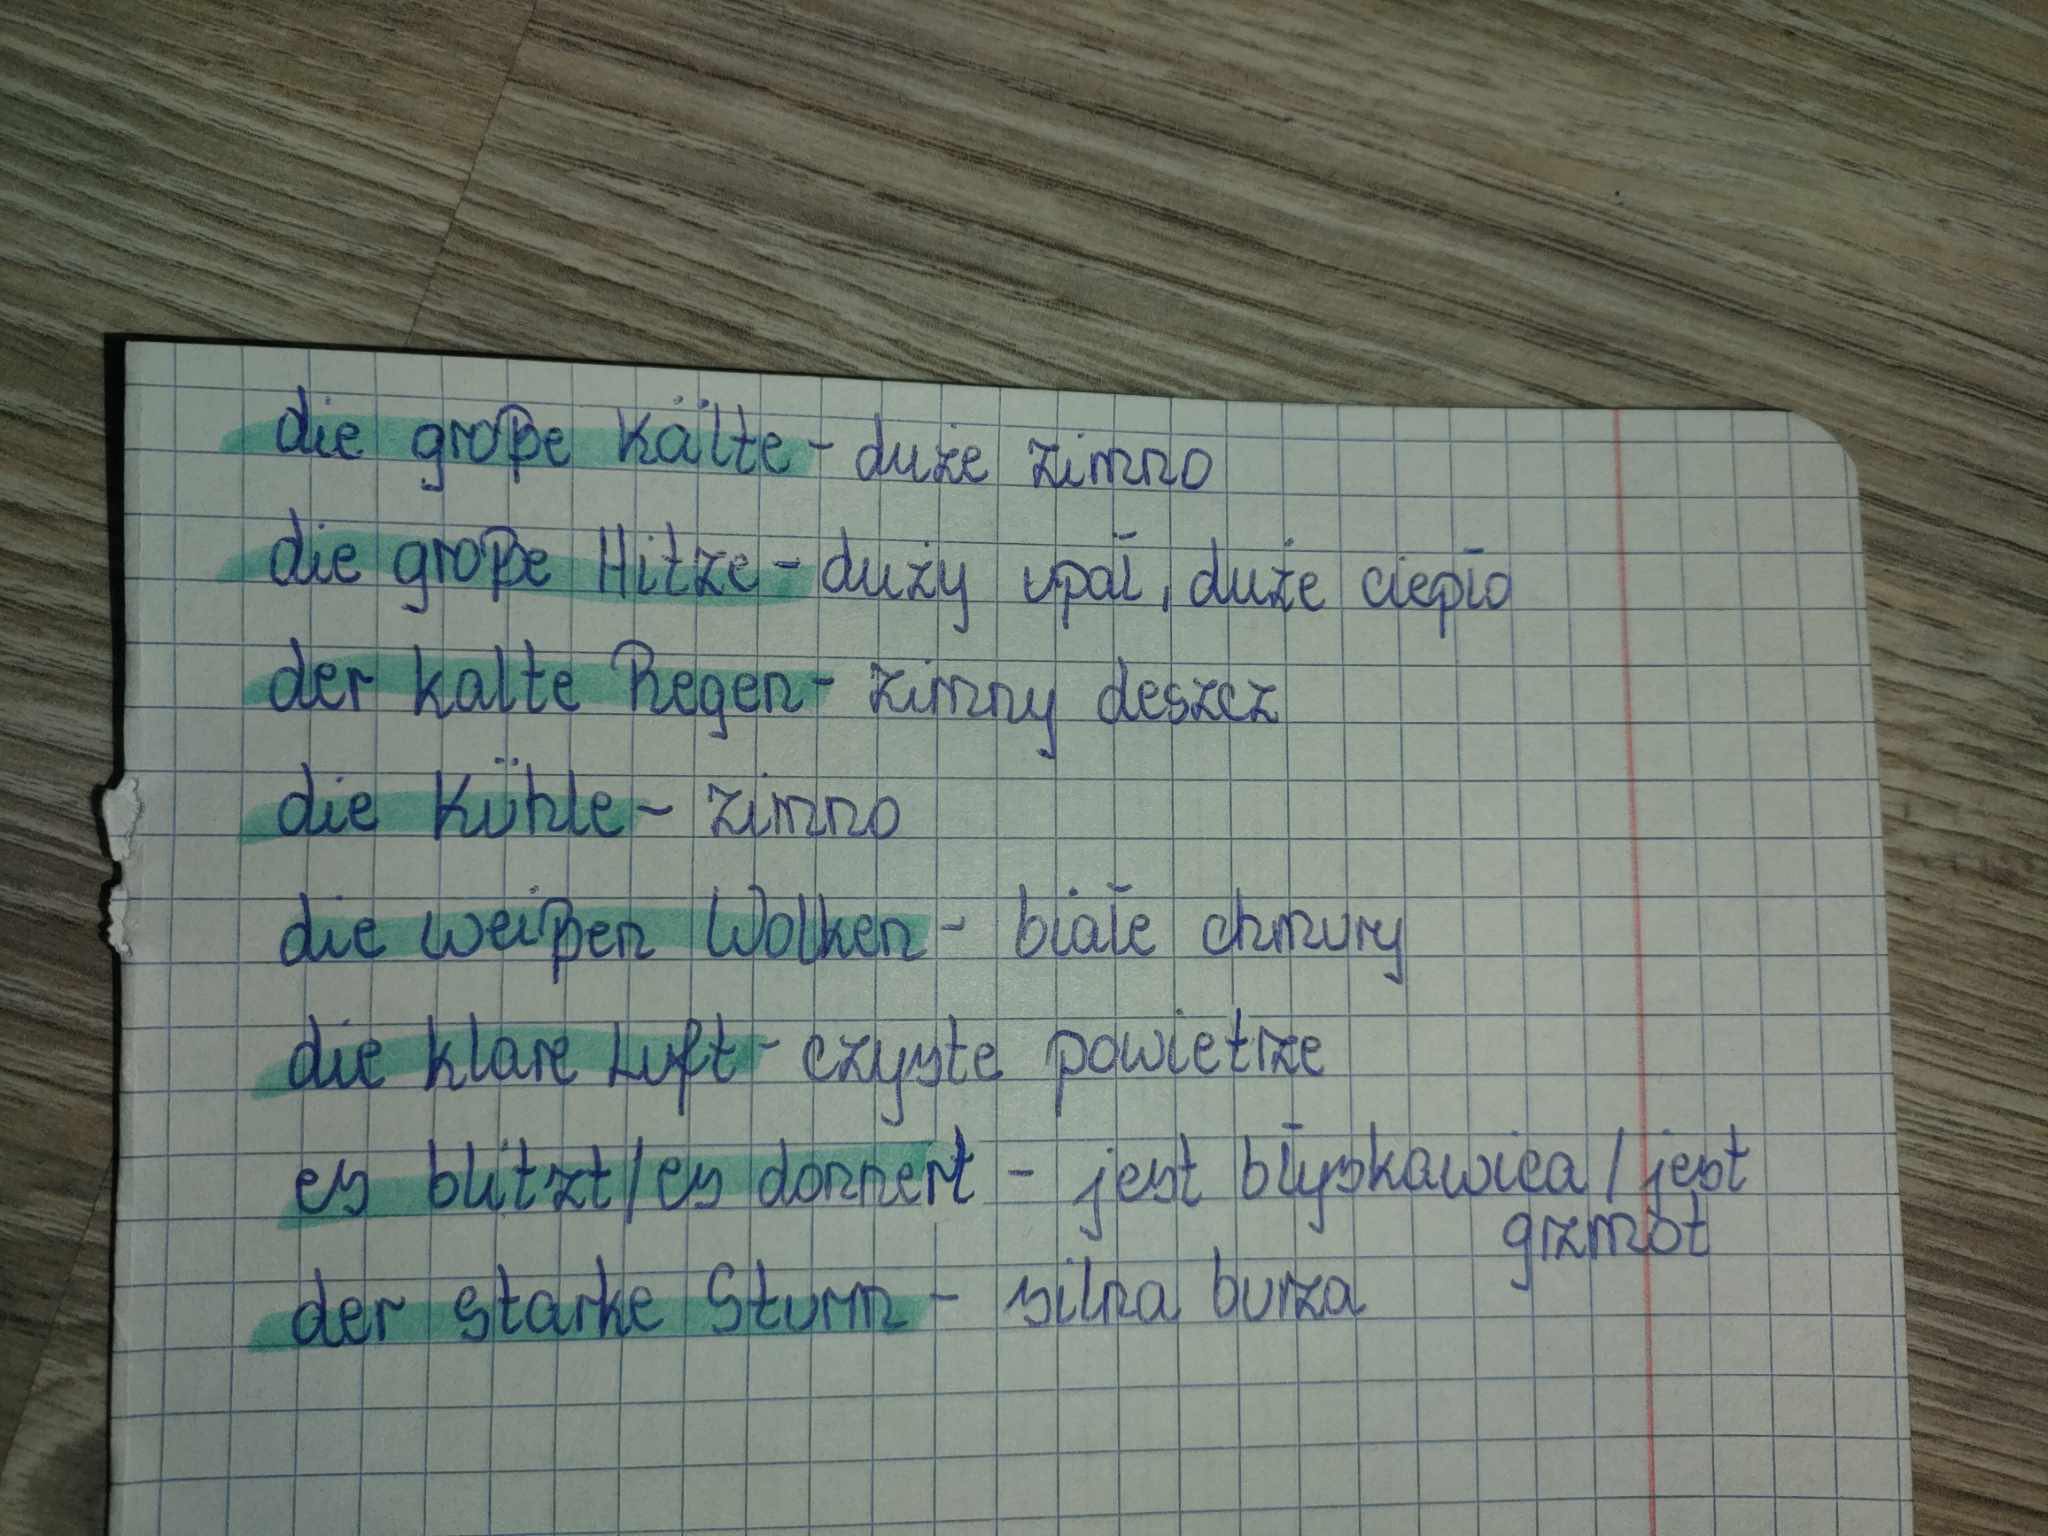 die große Kälte - duże zimno
die große Hitze - duży upał, duże ciepło
der kalte Regen - zimny deszcz
die Kühle - zimno
die weißen Wolken - białe chmury
die klare Luft - czyste powietrze
es blitzt/es donnert - jest błyskawica / jest
grzmot
der starke Sturm - silna burza